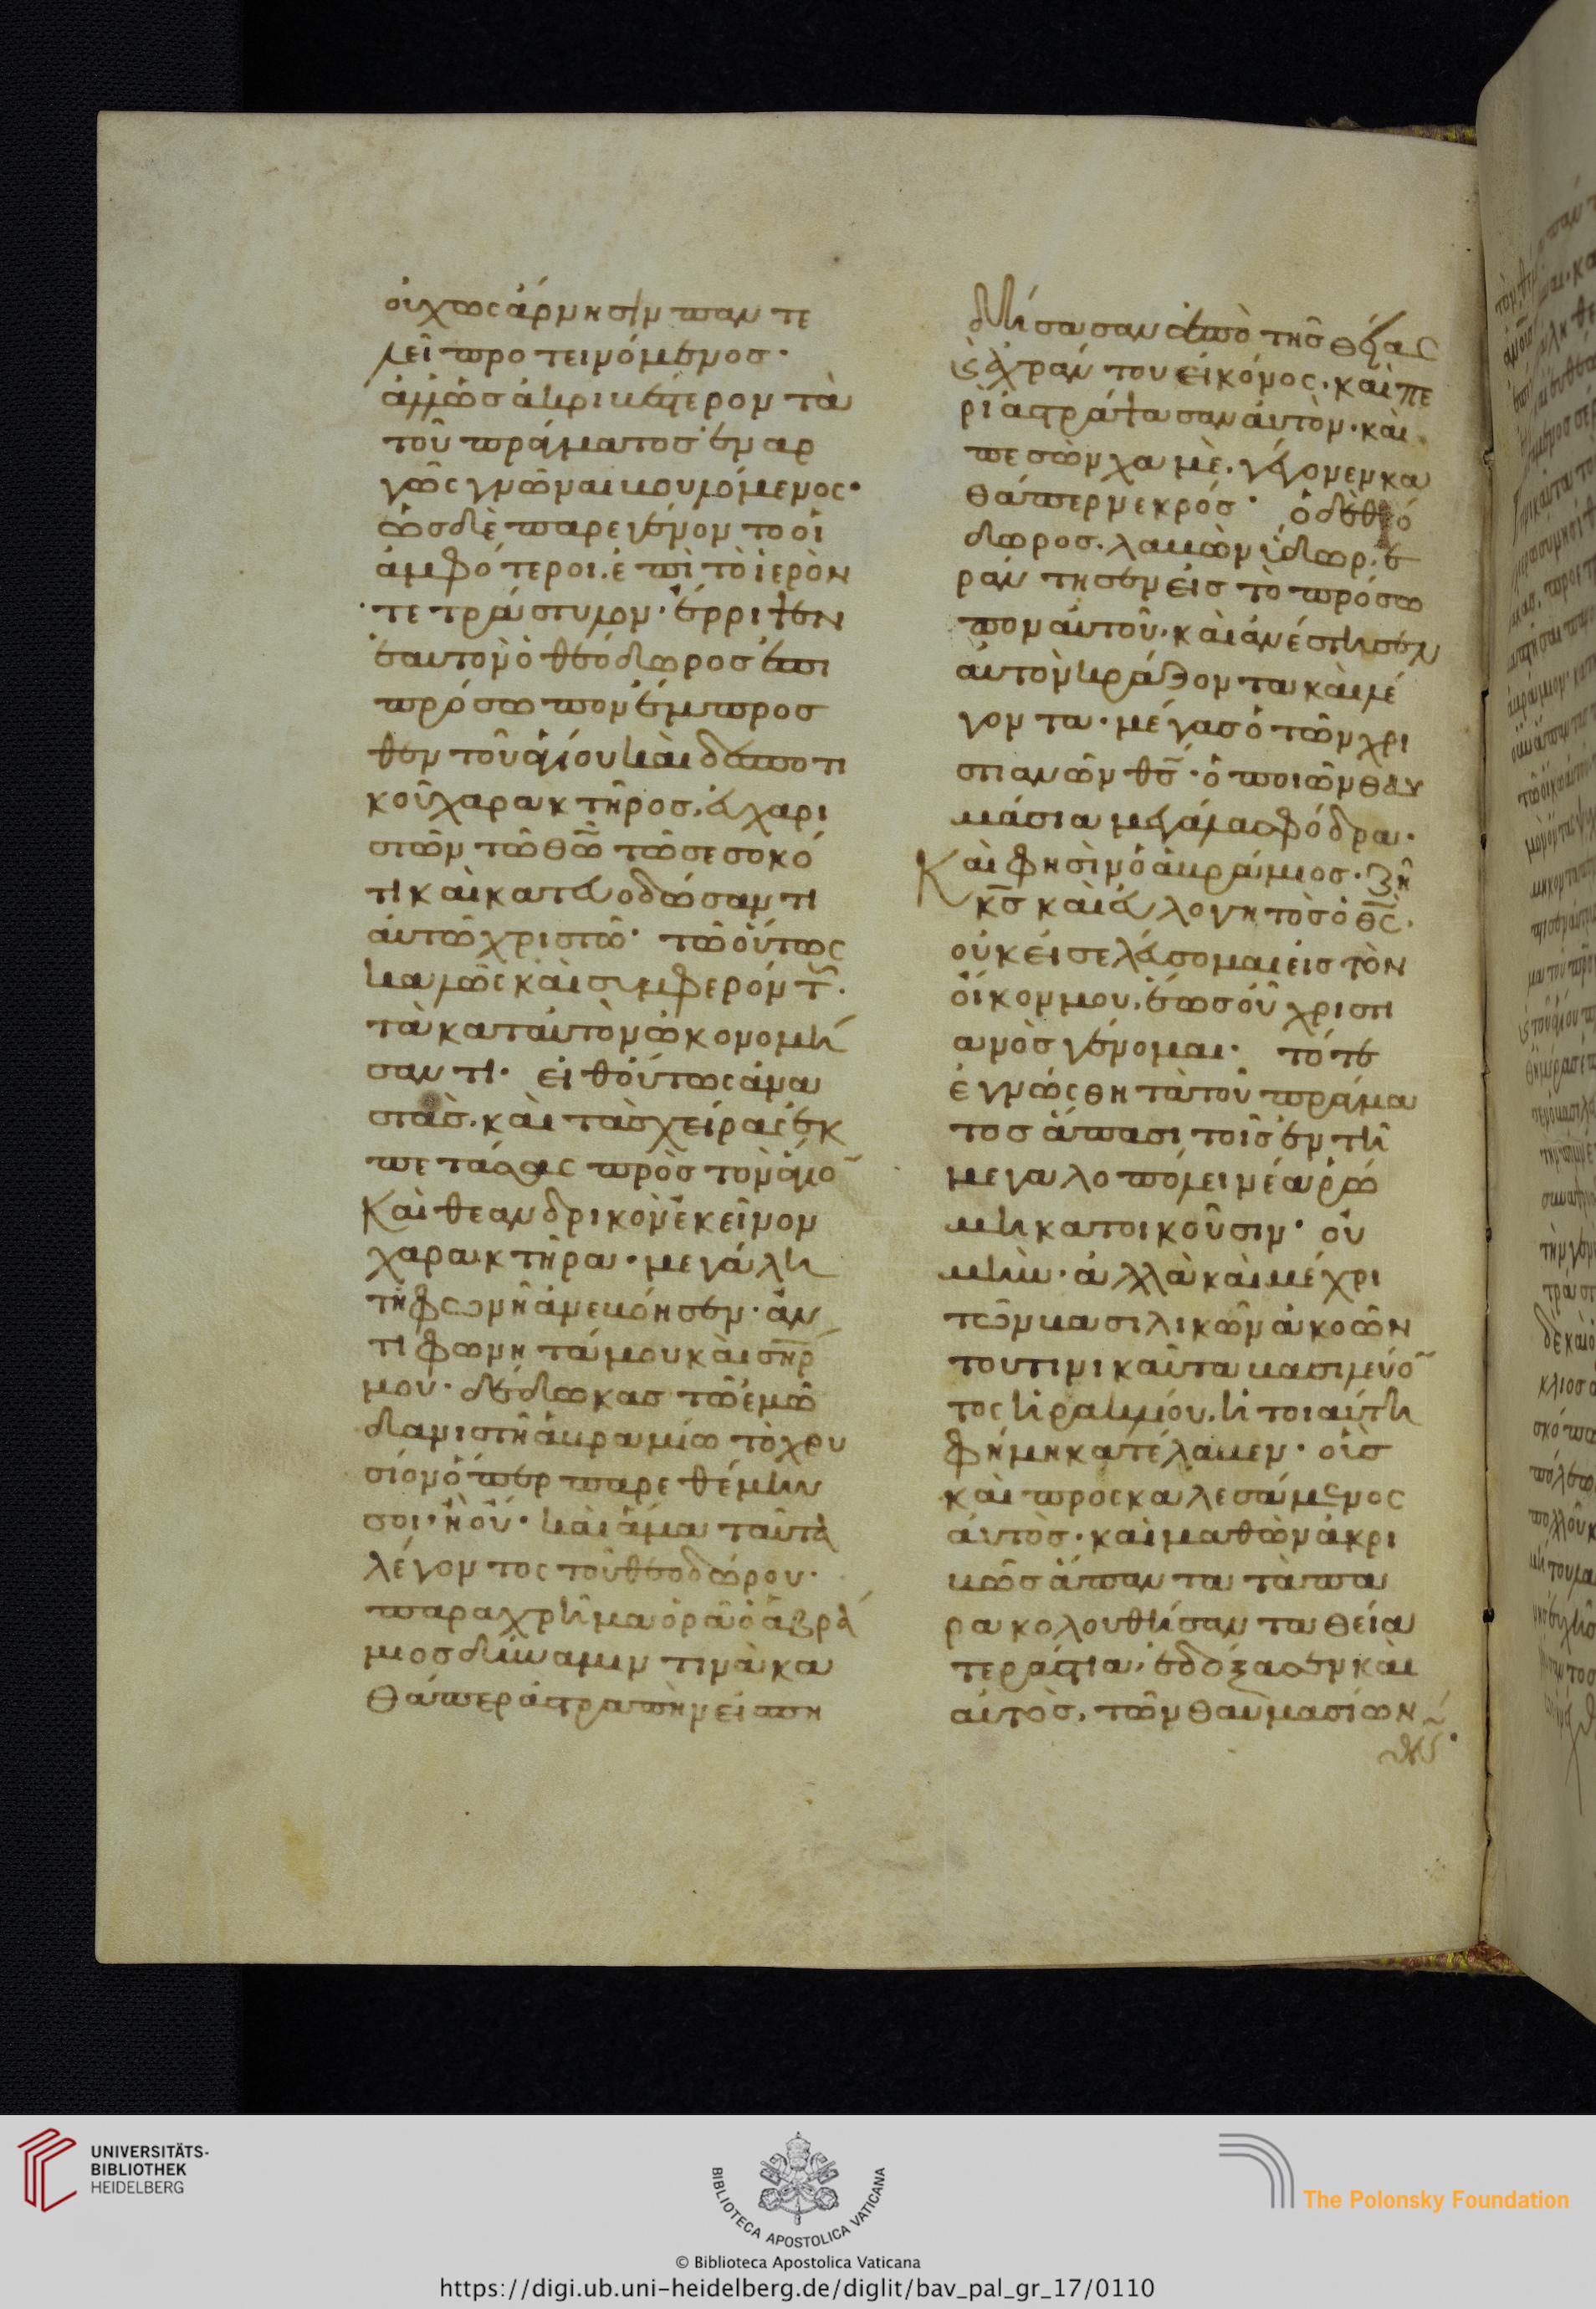 οὐχ ὡς ἄρνησιν παν τε
λεῖ προτεινόμενος·
ἀλλ' ὡς ἀκριβέστερον τὰ
τοῦ πράγματος ἐναρ
γῶς γνῶναι βουλόμενος·
ὡς δὲ παρεγένοντο οἱ
ἀμφότεροι. ἐπὶ τὸ ἱερὸν
τετράστυλον· ἔρριψεν
ἑαυτὸν ὁ θεόδωρος ἐπι
πρόσωπον ἔμπροσ
θεν τοῦ ἁγίου καὶ δεσποτι
κοῦ χαρακτῆρος. εὐχαρι
στῶν τῶ θῶ τῶ σεσωκό
τι καὶ κατευοδώσαντι
αὐτῶ χριστῶ· τῶ οὕτως
καλῶς καὶ συμφερόντ.
τὰ κατ αὐτὸν ὠκονομή
σαντι· εἶθ οὕτως ἀνα
στὰς. καὶ τὰς χεῖρας ἐκ
πετάσας πρὸς τὸν ἅγιο
Καὶ θεανδρικὸν ἐκεῖνον
χαρακτῆρα· μεγάλη
τῆ φωνῆ ἀνεβόησεν· ἀν
τιφωνητά μου καὶ σηρ
μου· δέδωκας τῶ ἐμῶ
δανιστῆ ἀβραμίω τὸ χρυ
σίον ὅπερ παρεθέμην
σοι· ἢ οὔ· καὶ ἅμα ταῦτα
λέγοντος τοῦ θεοδώρου·
παραχρῆμα ὁρᾶ ὁ ἀβρά
μιος δύναμιν τινὰ κα
θάπερ ἀστραπὴν εἰ πη
δήσασαν ἀπὸ τῆς θείας
ἐξ ἀχράντου εἰκόνος. καὶ πε
ριαστράψασαν αὐτὸν. καὶ
πεσὼν χαμὲ. γέγονεν κα
θάπερ νεκρός· ὁ δὲ θεό
δωρος. λαβὼν ὕδωρ. ἐ
ράντησεν εἰς τὸ πρόσω
πον αὐτοῦ. καὶ ἀνέστησεν
αὐτὸν κράζοντα καὶ λέ
γοντα· μέγας ὁ τῶν χρι
στιανῶν θς· ὁ ποιῶν θαυ
μάσια μεγάλα σφόδρα·
Καὶ φησὶν ὁ ἀβράμιος· ζῆ
κς καὶ εὐλογητὸς ὁ θς.
οὐκ εἰσελεύσομαι εἰς τὸν
οἶκον μου. ἕως οὗ χριστι
ανὸς γένομαι· τότε
ἐγνώσθη τὰ τοῦ πράγμα
τος ἅπασι τοῖς ἐν τῆ
μεγαλοπόλει νέα ῥώ
μη κατοικοῦσιν· οὐ
μὴν· ἀλλὰ καὶ μέχρι
τῶν βασιλικῶν ἀκοῶν
τουτινικαῦτα βασιλεύο
τος ἡρακλείου. ἡ τοιαύτη
φήμη κατέλαβεν· οὓς
καὶ προσκαλεσάμενος
αὐτὸς. καὶ μαθὼν ἀκρι
βῶς ἅπαντα τὰ πα
ρακολουθήσαντα θεία
τεράστια, ἐδόξασεν καὶ
αὐτὸς, τῶν θαυμασίων
UNIVERSITÄTS-
BIBLIOTHEK
HEIDELBERG
BIBLIOTECA APOSTOLICA VATICANA
The Polonsky Foundation
© Biblioteca Apostolica Vaticana
https://digi.ub.uni-heidelberg.de/diglit/bav_pal_gr_17/0110